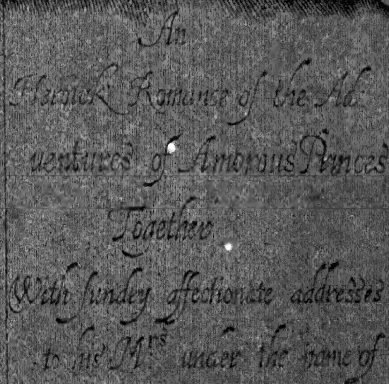 An
Heroick Romance of the Ad
uentures of Amorous Princes
Together
With sundey affectionate addresses
to his Mrs under the name of